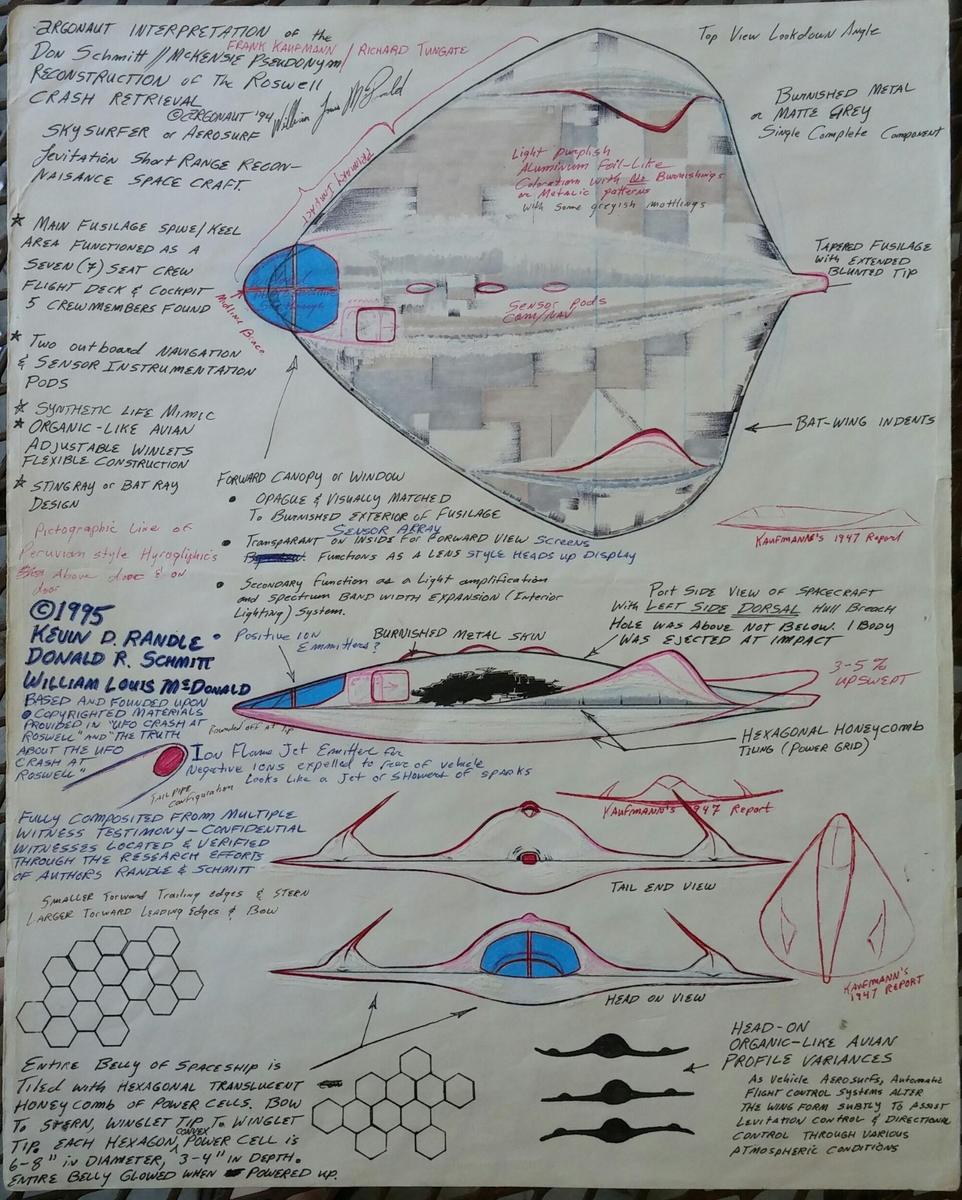 ARGONAUT INTERPRETATION of the
FRANK KAUFMANN / RICHARD TUNGATE
DON SCHMITT // McKENSIE PSEUDONYM
RECONSTRUCTION of THE ROSWELL
CRASH RETRIEVAL
© ARGONAUT '94 William Louis McDonald
SKYSURFER or AEROSURF
Levitation Short Range RECON-
NAISANCE SPACE CRAFT
Top View Lookdown Angle
BURNISHED METAL
or MATTE GREY
Single Complete Component
PRIMARY IMPACT
Light purplish
ALUMINUM FOIL-LIKE
Coloration with No Burnishings
or Metalic patterns
with some greyish mottlings
* MAIN FUSILAGE SPINE/KEEL
AREA FUNCTIONED AS A
SEVEN (7) SEAT CREW
FLIGHT DECK & COCKPIT
5 CREWMEMBERS FOUND
TAPERED FUSILAGE
with EXTENDED
BLUNTED TIP
Midline Brace
SENSOR PODS
COM/NAV
* TWO outboard NAVIGATION
& SENSOR INSTRUMENTATION
PODS
* SYNTHETIC LIFE MIMIC
* ORGANIC-LIKE AVIAN
ADJUSTABLE WINLETS
FLEXIBLE CONSTRUCTION
* STINGRAY or BAT RAY
DESIGN
BAT-WING INDENTS
FORWARD CANOPY or WINDOW
• OPAGUE & VISUALLY MATCHED
TO BURNISHED EXTERIOR of FUSILAGE
SENSOR ARRAY
• TRANSPARANT ON INSIDE FOR FORWARD VIEW SCREENS
FUNCTIONS AS A LENS STYLE HEADS UP DISPLAY
• SECONDARY FUNCTION as a Light amplification
and SPECTRUM BAND WIDTH EXPANSION (INTERIOR
LIGHTING) SYSTEM.
KAUFMANN'S 1947 REPORT
Pictographic Line of
Peruvian style Hyrogliphic's
Above door & on
door
© 1995
KEVIN D. RANDLE
DONALD R. SCHMITT
WILLIAM LOUIS McDONALD
BASED AND FOUNDED UPON
COPYRIGHTED MATERIALS
PROVIDED IN "UFO CRASH AT
ROSWELL" AND "THE TRUTH
ABOUT THE UFO
CRASH AT
ROSWELL"
• POSITIVE ION
EMMITTERS?
BURNISHED METAL SKIN
PORT SIDE VIEW OF SPACECRAFT
WITH LEFT SIDE DORSAL HULL BREACH
HOLE WAS ABOVE NOT BELOW. 1 BODY
WAS EJECTED AT IMPACT
3-5%
UPSWEPT
Rounded off at tip
HEXAGONAL HONEYCOMB
TILING (POWER GRID)
ION FLAME JET EMITTER for
NEGATIVE IONS expelled to rear of vehicle
Looks like a Jet or SHOWER of SPARKS
TAIL PIPE
configuration
FULLY COMPOSITED FROM MULTIPLE
WITNESS TESTIMONY – CONFIDENTIAL
WITNESSES LOCATED & VERIFIED
THROUGH THE RESEARCH EFFORTS
OF AUTHORS RANDLE & SCHMITT
KAUFMANN'S 1947 REPORT
TAIL END VIEW
SMALLER Toward Trailing edges & STERN
LARGER Toward Leading Edges & BOW
HEAD ON VIEW
KAUFMANN'S
1947 REPORT
ENTIRE BELLY OF SPACESHIP is
TILED WITH HEXAGONAL TRANSLUCENT
HONEYCOMB OF POWER CELLS. BOW
TO STERN, WINGLET TIP TO WINGLET
CONVEX
TIP. EACH HEXAGON, POWER CELL is
6-8" in DIAMETER, 3-4" IN DEPTH.
ENTIRE BELLY GLOWED WHEN POWERED UP.
HEAD-ON
ORGANIC-LIKE AVIAN
PROFILE VARIANCES
As Vehicle AEROSURFS, Automatic
FLIGHT CONTROL SYSTEMS ALTER
THE WING FORM SUBTLY TO ASSIST
LEVITATION CONTROL & DIRECTIONAL
CONTROL THROUGH VARIOUS
ATMOSPHERIC CONDITIONS